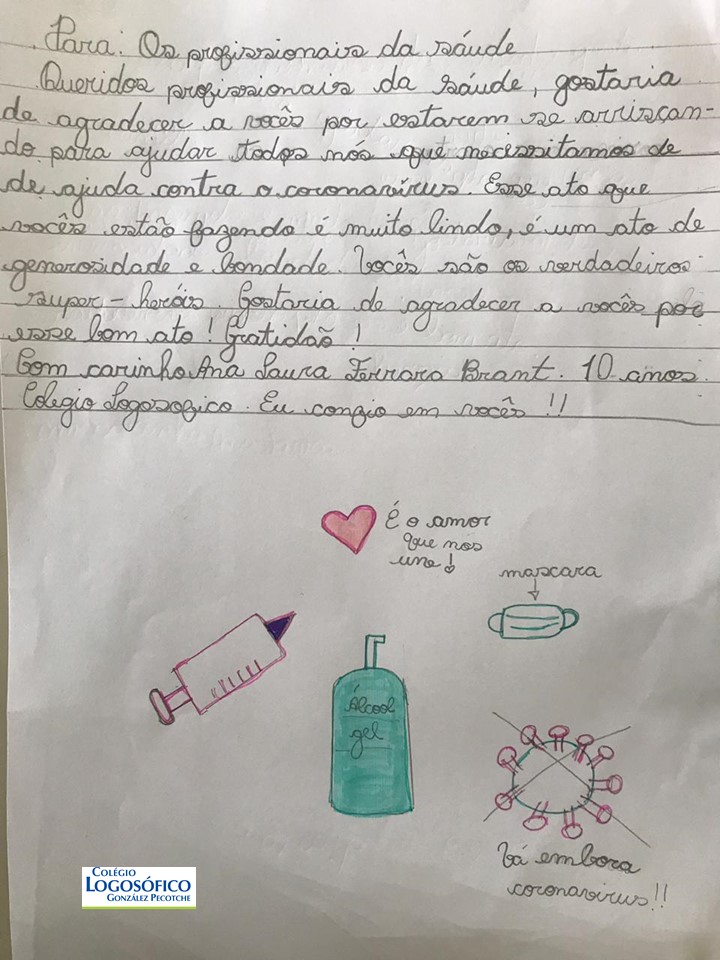 Para: Os profissionais da sáude
Queridos profissionais da sáude, gostaria
de agradecer a vocês por estarem se arriscan-
do para ajudar todos nós que necessitamos de
de ajuda contra o coronavírus. Esse ato que
vocês estão fazendo é muito lindo, é um ato de
generosidade e bondade. Vocês são os verdadeiros
super-heróis. Gostaria de agradecer a vocês por
esse bom ato! Gratidão!
Com carinho Ana Laura Ferrara Brant. 10 anos.
Colegio Logosofico. Eu confio em vocês!!
É o amor
que nos
une!
mascara
Álcool
gel
Vá embora
coronavirus!!
COLÉGIO
LOGOSÓFICO
GONZÁLEZ PECOTCHE